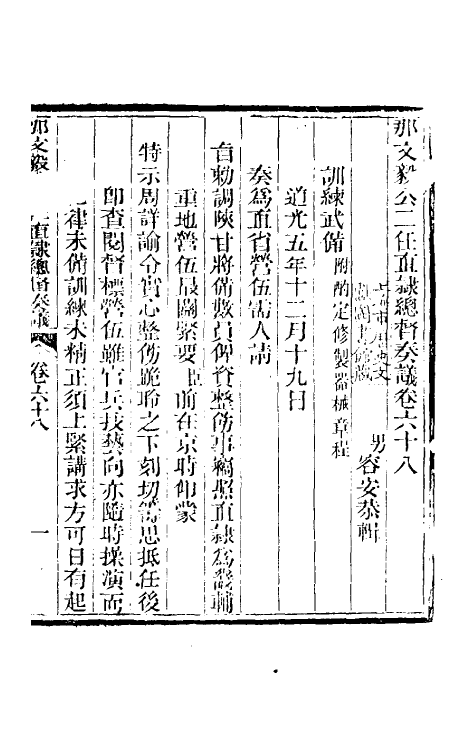 那文毅公二任直隸總督奏議卷六十八
男 容安恭輯
訓練武備 附酌定修製器械章程
道光五年十二月十九日
奏爲直省營伍需人請
旨勅調陝甘將備數員俾資整飭事竊照直隸爲畿輔
重地營伍最關緊要臣前在京時仰蒙
特示周詳諭令實心整飭跪聆之下刻切籌思抵任後
卽查閱督標營伍雖官兵技藝向亦隨時操演而
律未備訓練未精正須上緊講求方可日有起
那文毅
直隸總督奏議
卷六十八
一